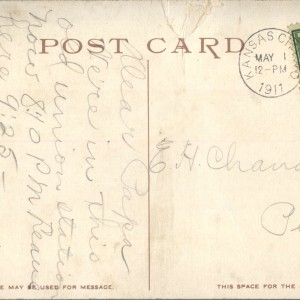 POST CARD
KANSAS CITY
MAY 1
12-PM
1911
Dear Papa
Here in this
old union station
now 8:40 P.M. Leave
here 9:25-
E. H. Chan
E MAY BE USED FOR MESSAGE.
THIS SPACE FOR THE